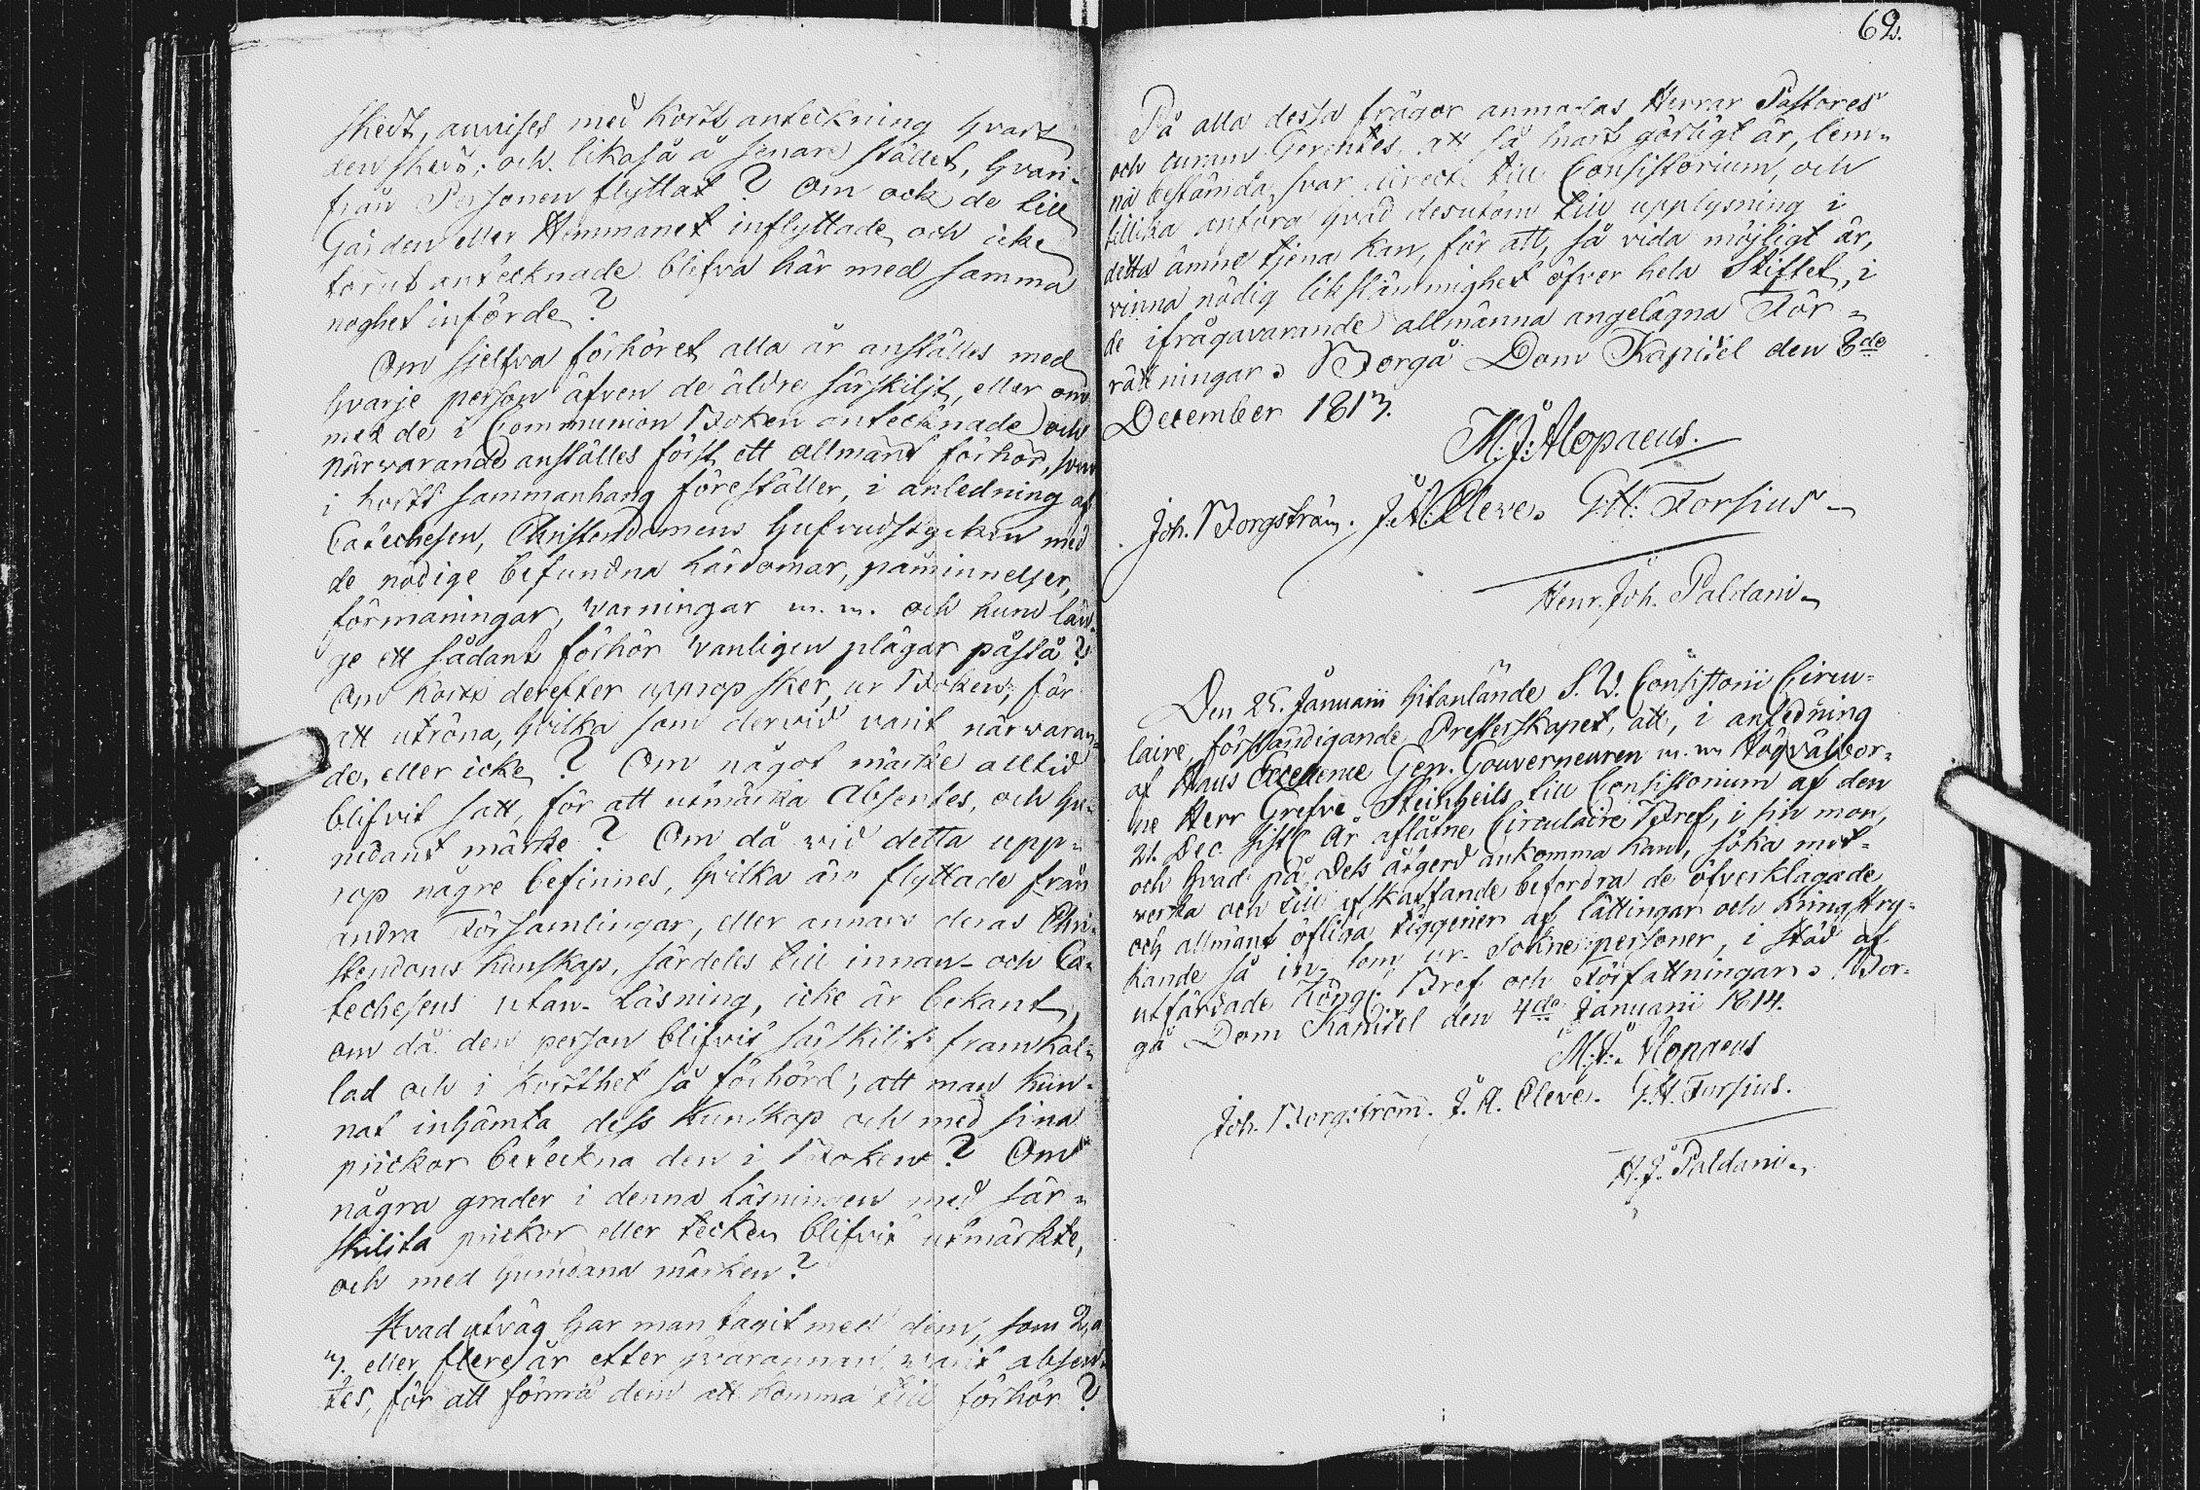 skedt, anvises med kort anteckning hvart
den skedt; och likaså å senare stället, hvari-
från Personen flyttat? Om ock de till
Gården eller Hemmanet inflyttade och icke
förut antecknade blifva här med samma
noghet införde?
Om sjelfva förhöret alla år anställes med
hvarje person äfven de äldre särskiljt, eller om
med de i Communion Boken antecknade och
närwarande anställes först ett allmänt förhör, som
i kort sammanhang föreställer, i anledning af
Catechesen, Christendomens hufvudstycken med
de nödige befundna lärdomar, påminnelser,
förmaningar, warningar m. m. och huru län-
ge ett sådant förhör vanligen plägar påstå?
Om kort derefter upprop sker ur Boken, för
att utröna, hvilka som dervid varit närwaran-
de, eller icke? Om något märke alltid
blifvit satt, för att utmärka Absentes, och hu-
rudant märke? Om då vid detta upp-
rop någre befinnes, hvilka äro flyttade från
andra Församlingar, eller annars deras Chri-
stendoms kunskap, särdeles till innan- och Ca-
techesens utan-läsning, icke är bekant,
om då den person blifvit särskilit framkal-
lad och i korthet så förhörd, att man kun-
nat inhämta dess kunskap och med sina
prickor beteckna den i Boken? Om
några grader i denna läsningen med sär-
skilta prickor eller tecken blifvit utmärkte,
och med hurudana märken?
Hvad utväg har man tagit med dem, som 2, a
3. eller flere år efter hvarannan varit absen-
tes, för att förmå dem att komma till förhör?
62.
På alla dessa frågor anmodas Herrar Pastores
och curam Gerentes, att så snart görligt är, lem-
na bestämda svar directe till Consistorium, och
tillika anföra hvad desutom till upplysning i
detta ämne tjena kan, för att, så vida möjligt är,
vinna nödig likstämmighet öfver hela Stiftet, i
de ifrågavarande allmänna angelägna För-
rättningar. Borgå Dom Kapitel den 8de
December 1813.
M. J: Alopaeus.
Joh. Borgström. J. A. Cleve. G. H: Forsius
Henr. Joh. Paldani
Den 25. Januarii hitanlände S. V. Consistorii Circu-
laire, förständigande Presterskapet, att, i anledning
af Hans Excellence Gen. Gouverneuren m. m. Högvälbor-
ne Herr Grefve Steinheils till Consistorium af den
21. Dec. sistl. År aflåtne Circulaire Bref, i sin mon,
och hvad på Dess åtgerd ankomma kan, söka mot-
verka och till afskaffande befordra de öfverklagade
och allmänt öfliga tiggerier af lättingar och kringstry-
kande så in- som ur- Sokne personer, i stöd af
utfärdade Kongl. Bref och Författningar. Bor-
gå Dom Kapitel den 4de Januarii 1814.
M. J: Alopaeus
Joh. Borgström. J. A. Cleve. G. H. Forsius.
H. J. Paldani